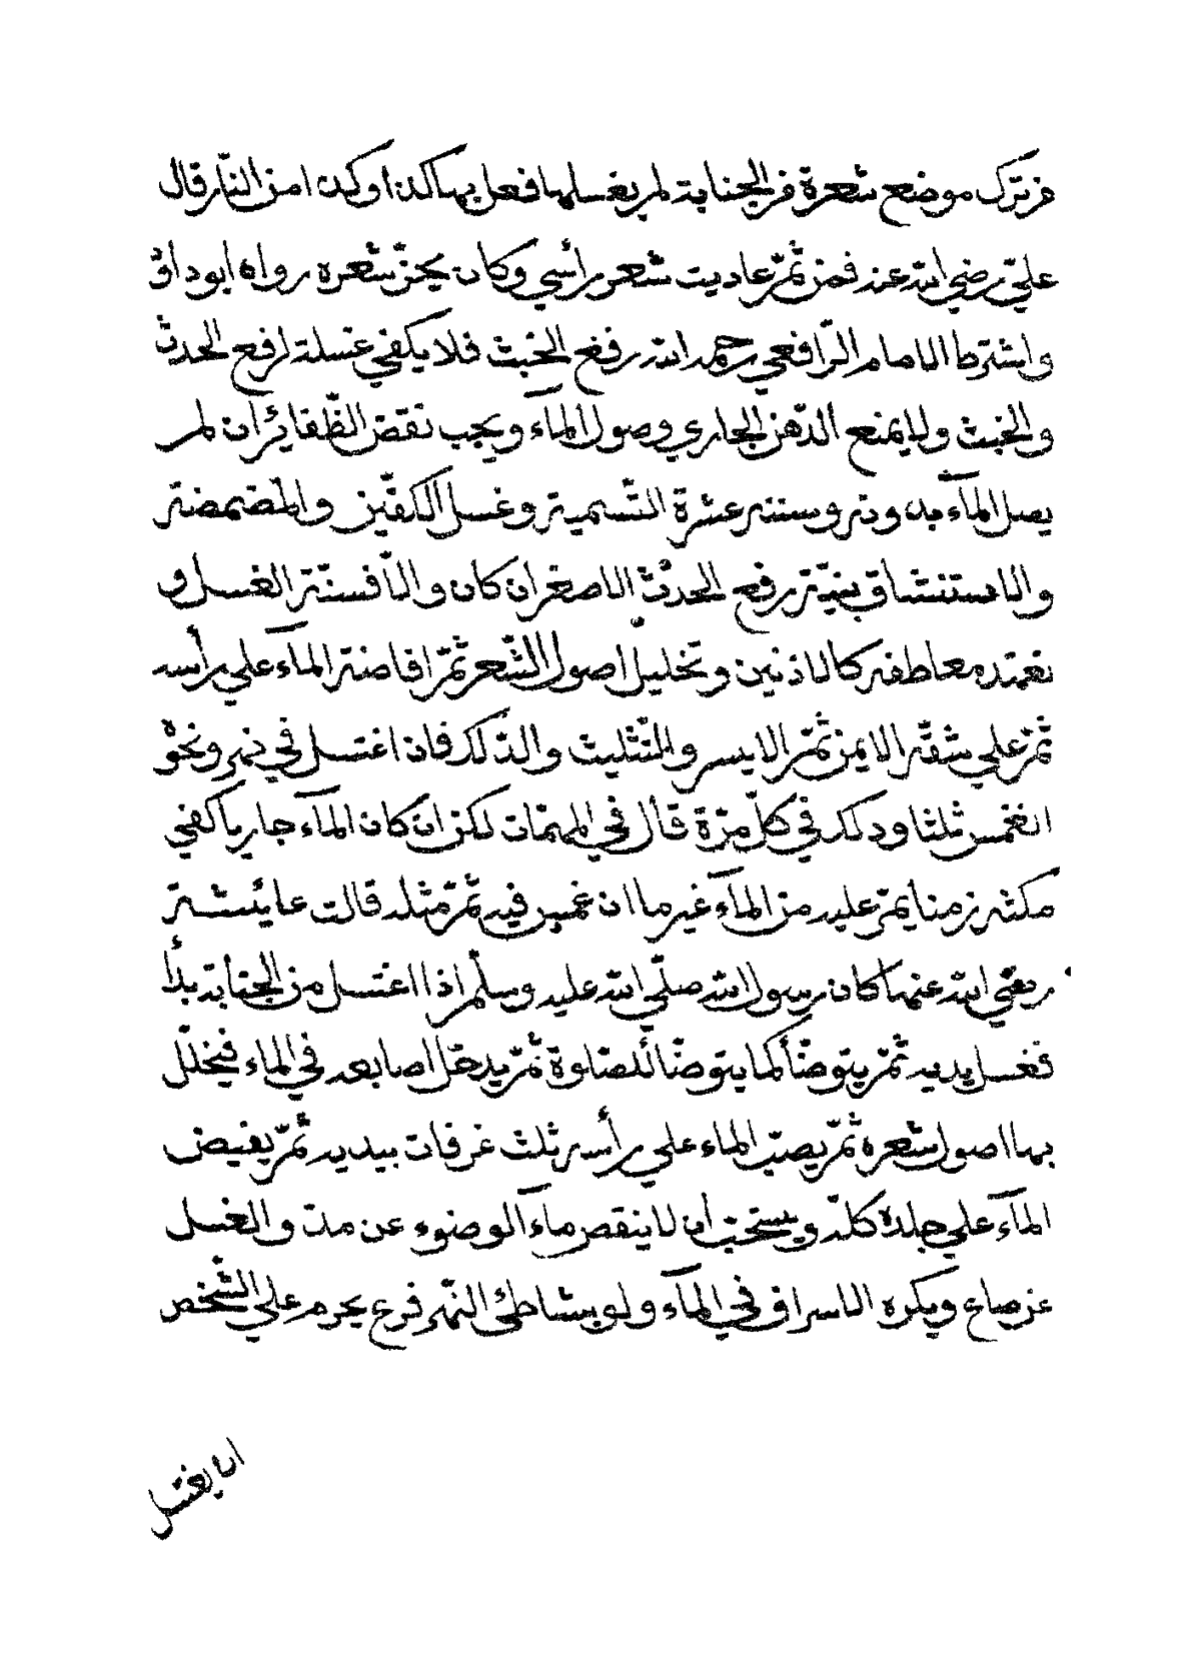 من ترك موضع شعرة من الجنابة لم يغسلها فعل بها كذا وكذا من النار قال
عليّ رضي الله عنه فمن ثمّ عاديت شعر رأسي وكان يجزّ شعره رواه ابو داوٗ
واشترط الامام الرّافعي رحمه الله رفع الخبث فلا يكفي غسلة لرفع الحدث
والخبث ولا يمنع الدّهن الجاري وصول المآء ويجب نقض الظّفائر ان لم
يصل المآء بدونه وسننه عشرة التّسمية وغسل الكفّين والمضمضة
والاستنشاق بنيّة رفع الحدث الاصغر ان كان والّا فسنّة الغسل و
تعهّد معاطفه كالاذنين وتخليل اصول الشّعر ثمّ افاضة المآء علي رأسه
ثمّ علي شقّه الايمن ثمّ الايسر والتّثليث والدّلك فان اغتسل في نهر ونحوٖ
انغمس ثلثا ودلك في كلّ مرّة قال في المهمّات لكن ان كان المآء جاريا كفي
مكثه زمنا يمرّ عليه من المآء غير ما ان غمس فيه ثمّ مثله قالت عايئشة
رضي الله عنها كان رسول الله صلّي الله عليه وسلّم اذا اغتسل من الجنابة بدأ
فغسل يديه ثمّ يتوضّأ كما يتوضّأ للصّلوة ثمّ يدخل اصابعه في الماء فيخلّل
بها اصول شعره ثمّ يصبّ الماء علي رأسه ثلث غرفات بيديه ثمّ يفيض
المآء علي جلده كلّه ويستحبّ أن لا ينقص مآء الوضوء عن مدّ والغسل
عن صاع ويكره الاسراف في المآء ولو بشاطئ النّهر فرع يحرم علي الشّخص
ان يغتسل